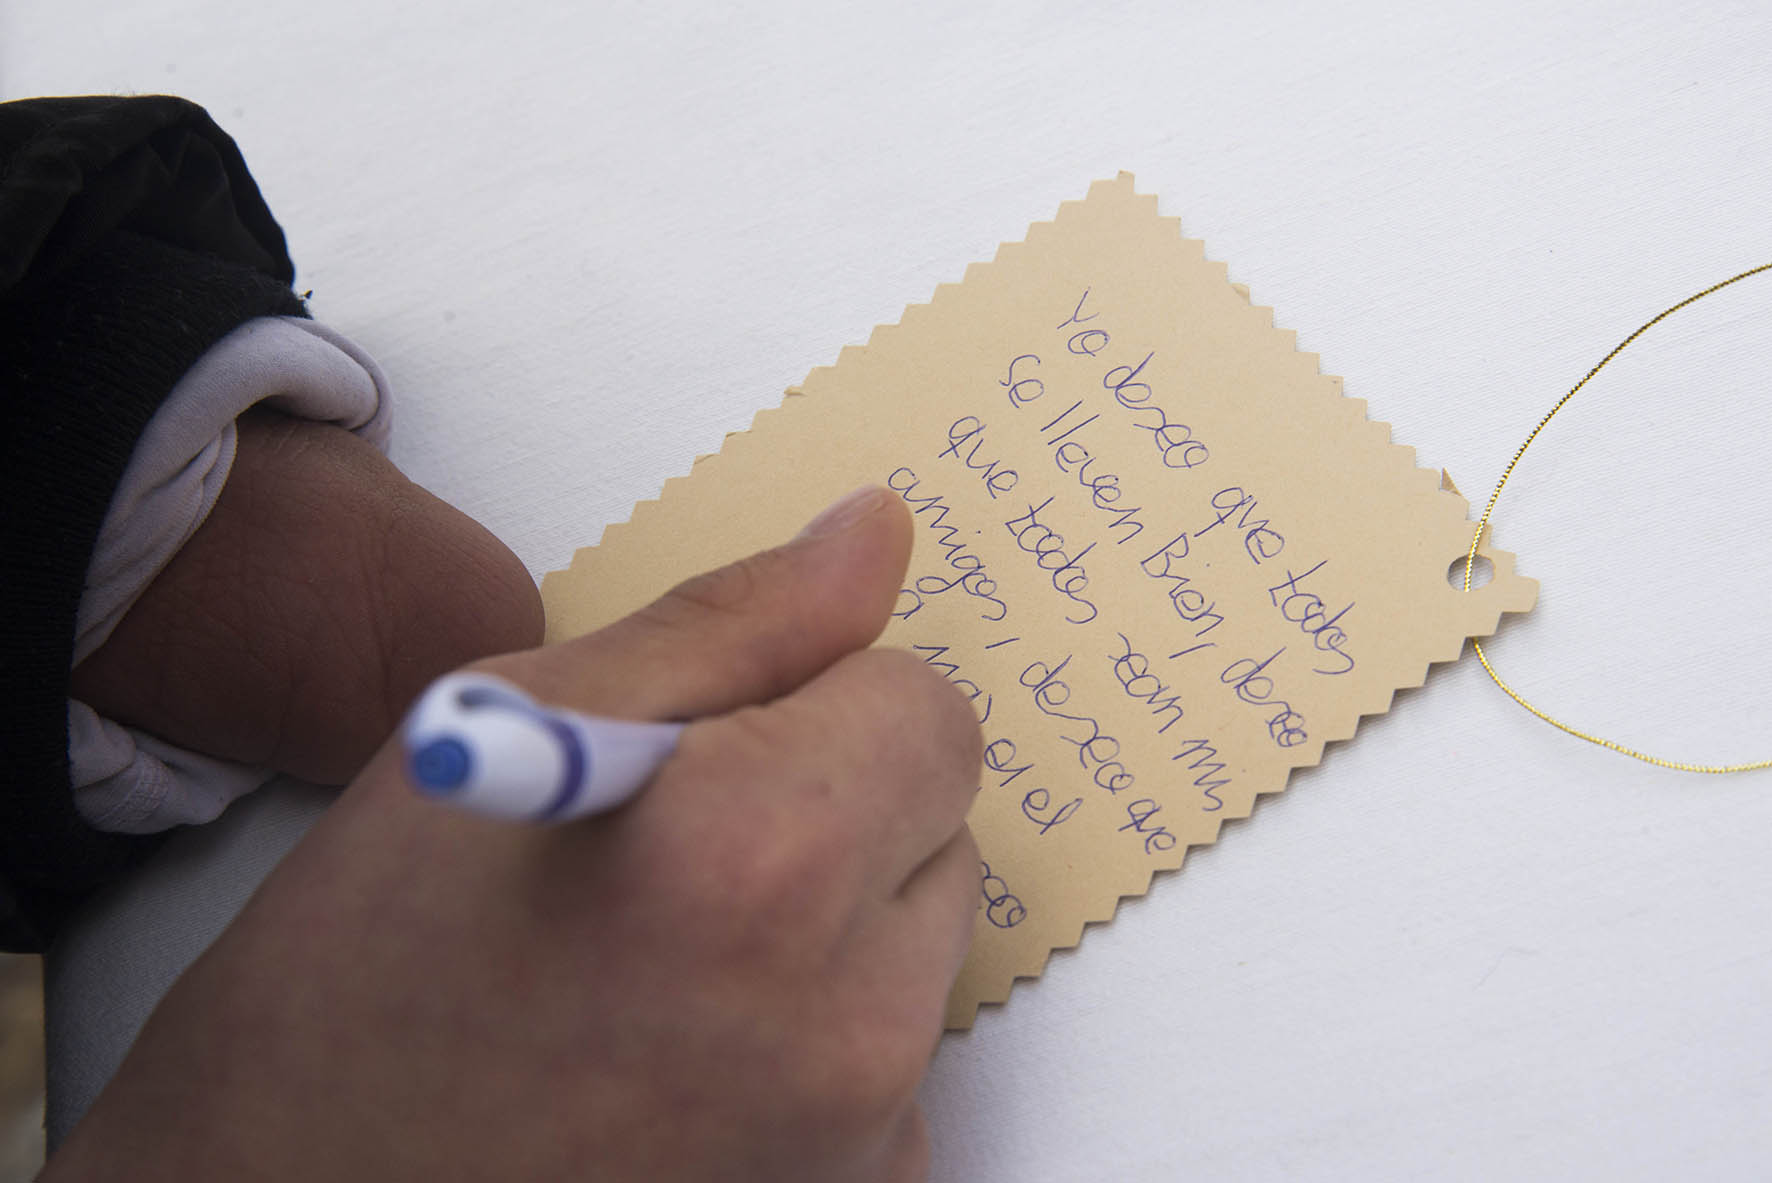 Yo deseo que todos
se lleven Bien, deseo
que todos sean mis
amigos, deseo que
el el